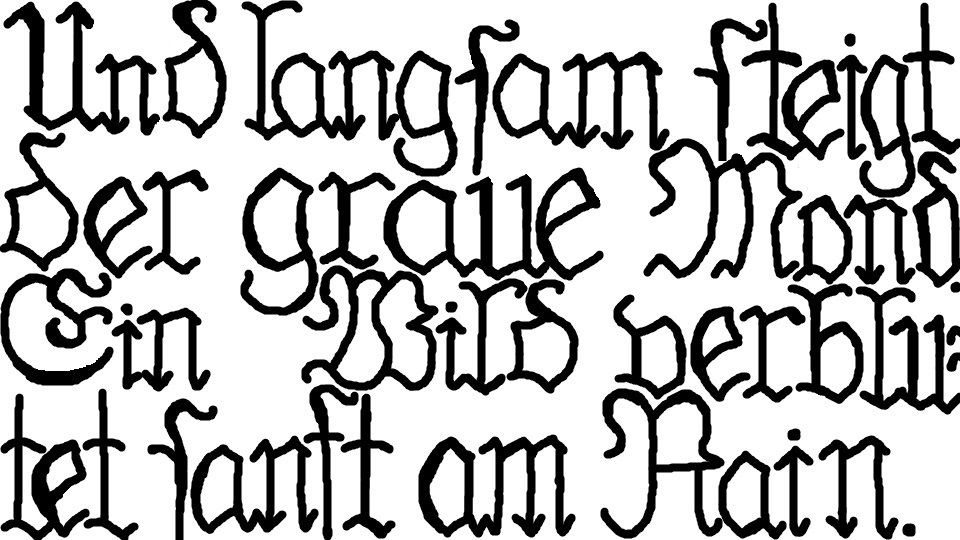 Und langſam ſteigt
der graue Mond
Ein Bild verblu⸗
tet ſanft am Rain.